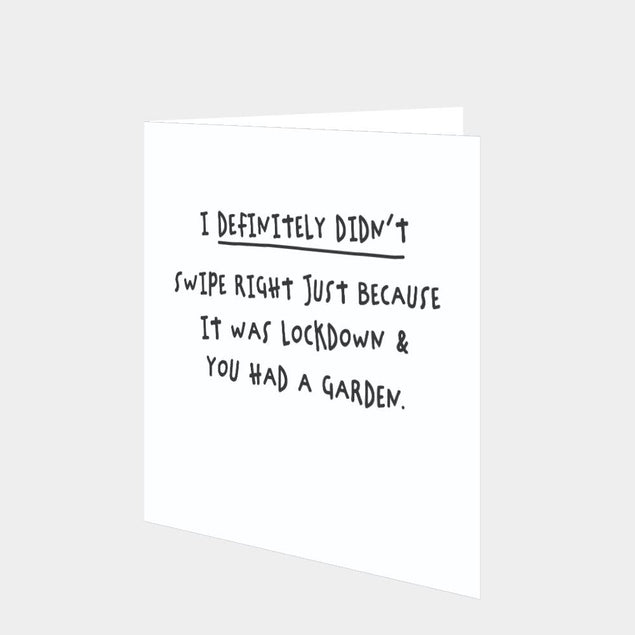 I DEFINITELY DIDN'T
SWIPE RIGHT JUST BECAUSE
IT WAS LOCKDOWN &
YOU HAD A GARDEN.